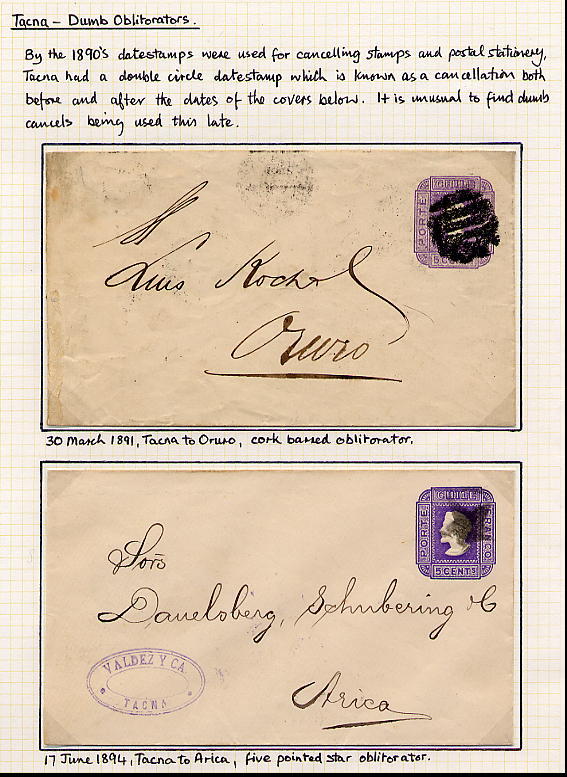 Tacna - Dumb Obliterators.
By the 1890's datestamps were used for cancelling stamps and postal stationery,
Tacna had a double circle datestamp which is known as a cancellation both
before and after the dates of the covers below. It is unusual to find dumb
cancels being used this late.
CHILE
PORTE
5 CEN
Luis Koch
Oruro
30 March 1891, Tacna to Oruro, cork barred obliterator.
CHILE
PORTE
FRANCO
5 CENTS
Sors
Dauelsberg, Schubering & C
VALDEZ Y CA.
TACNA
Arica
17 June 1894, Tacna to Arica, five pointed star obliterator.